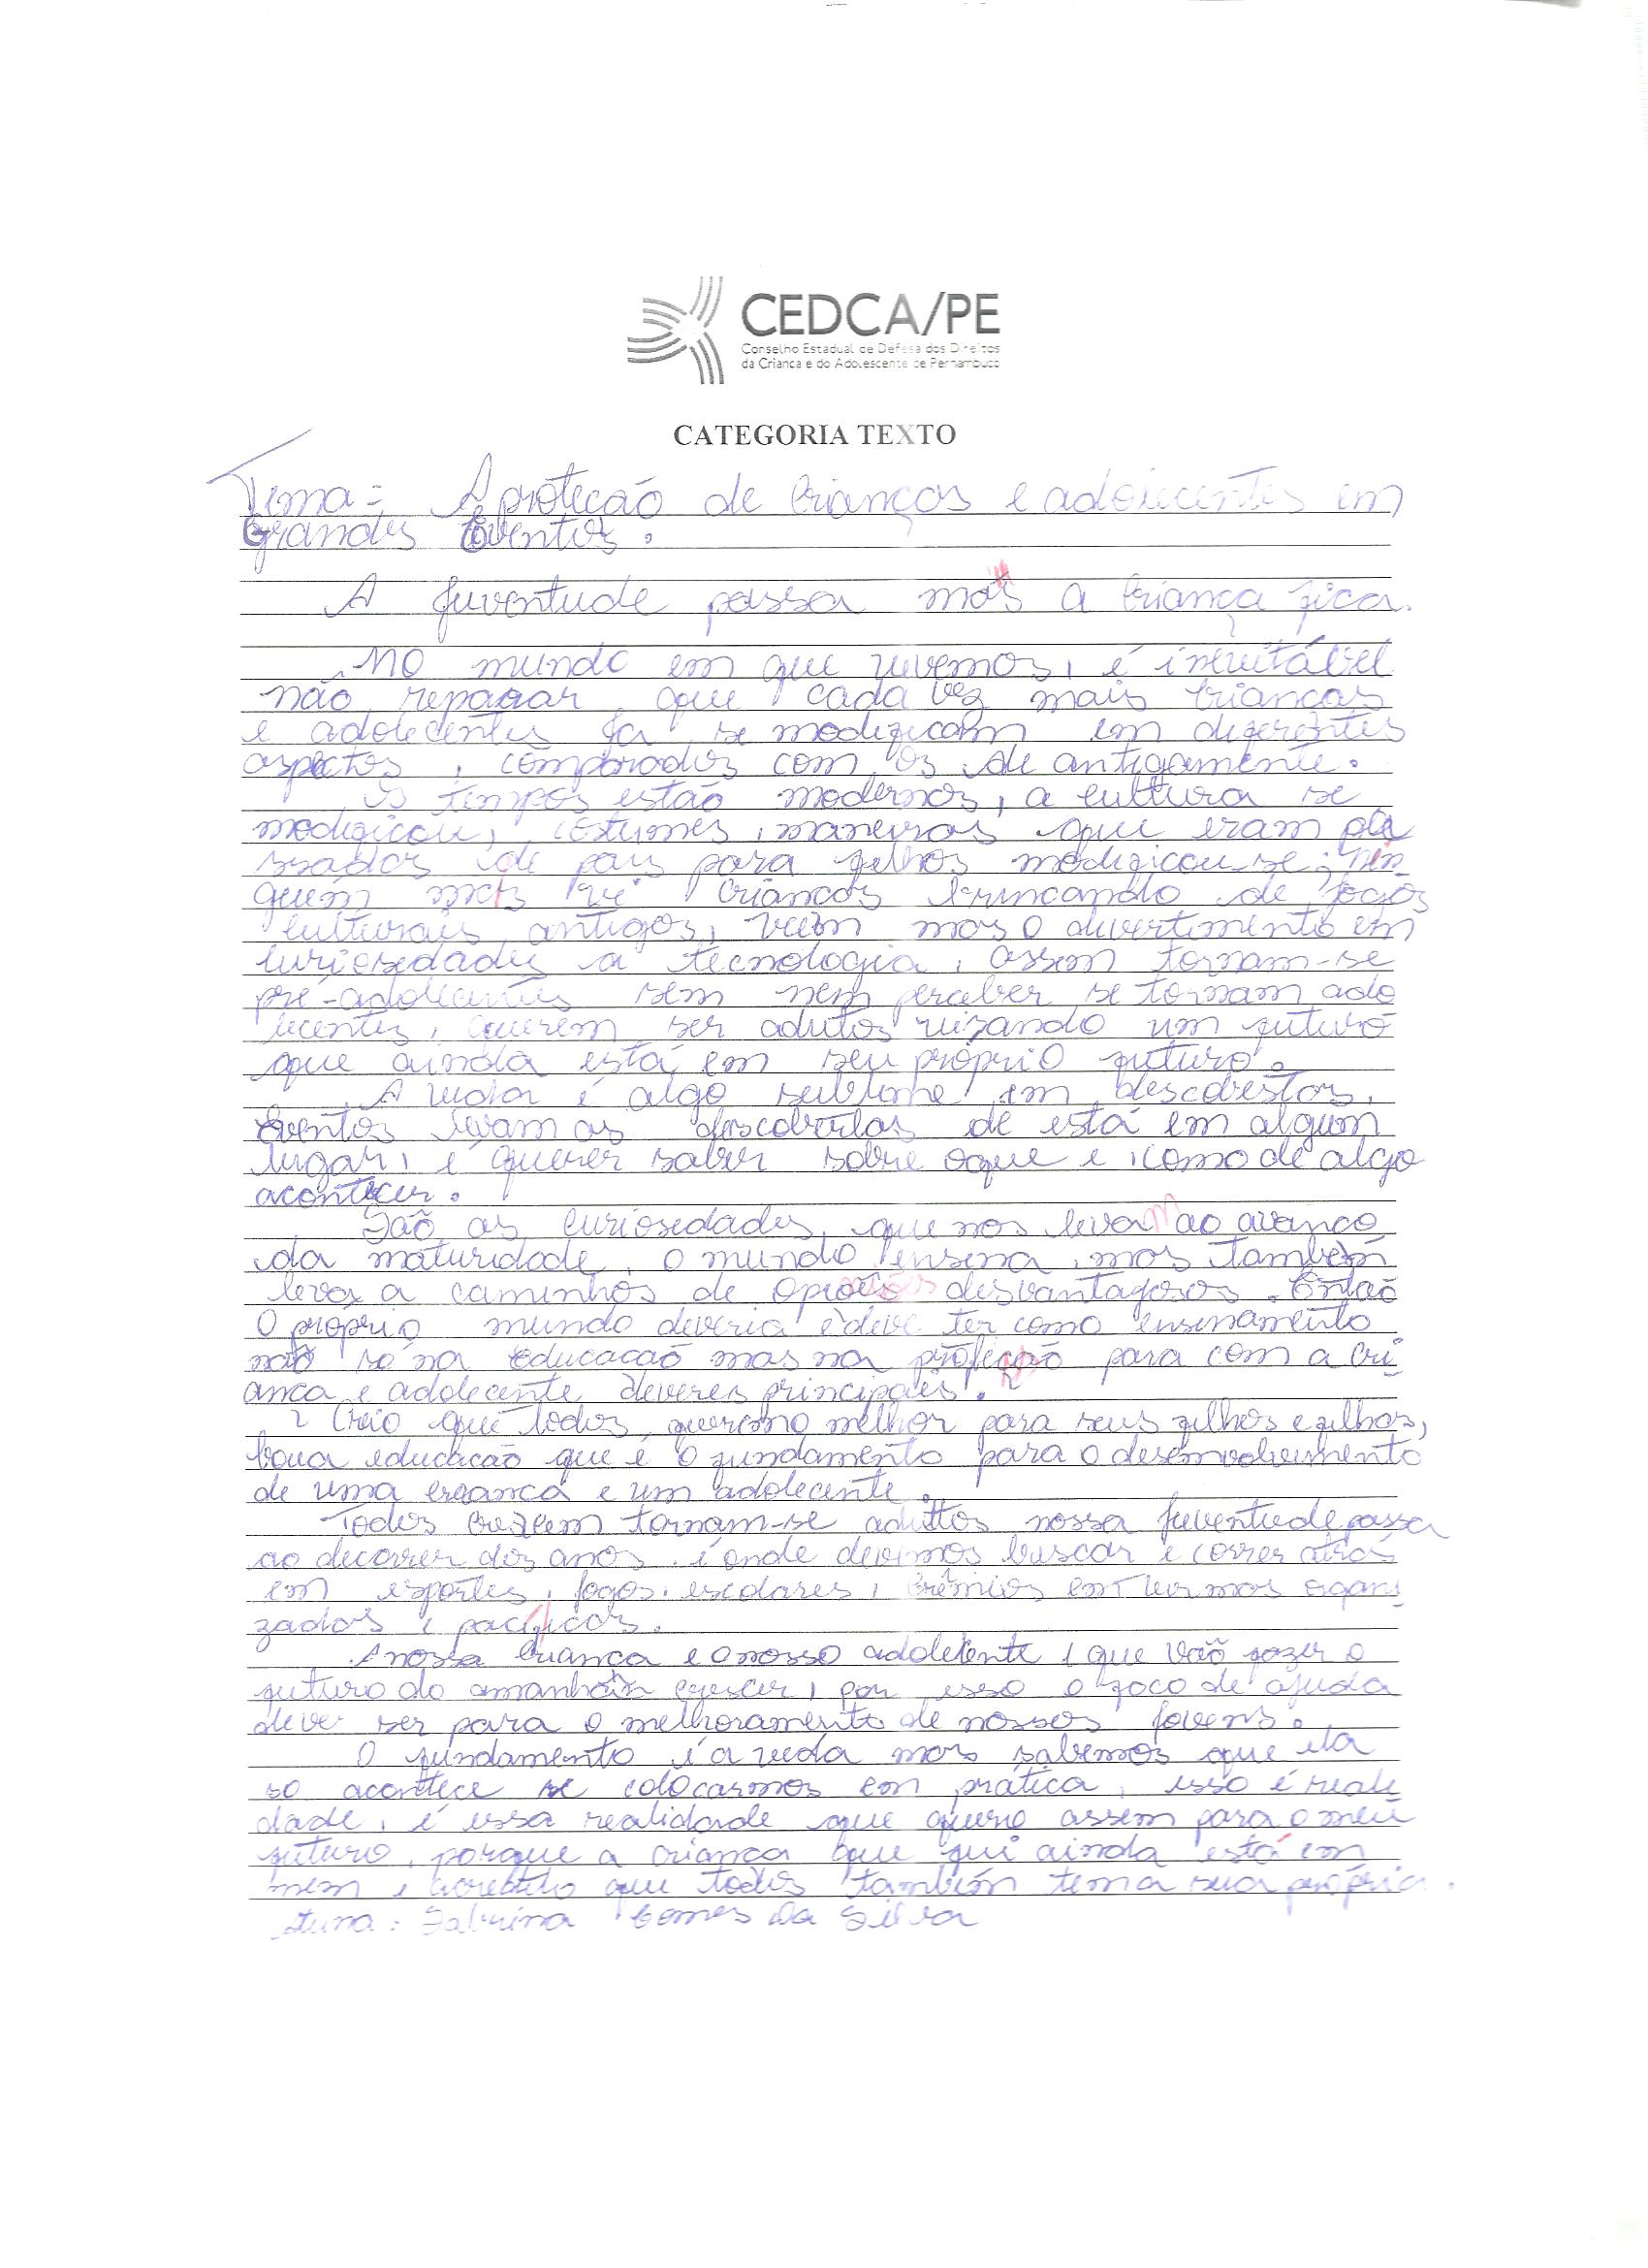 CEDCA/PE
Conselho Estadual de Defesa dos Direitos
da Criança e do Adolescente de Pernambuco
CATEGORIA TEXTO
Tema: A proteção de Crianças e adolecentes em
Grandes Eventos.
A Juventude passa mas a Criança fica.
No mundo em que vivemos, é inevitável
não reparar que cada vez mais crianças
e adolecentes ja se modificam em diferentes
aspectos, comparados com os de antigamente.
Os tempos estão modernos, a cultura se
modificou, costumes, maneiras que eram pa
ssados de pais para filhos modificou-se, nin
guém mais vê crianças brincando de jogos
culturais antigos, veem mas o divertimento em
curiosedades a tecnologia, assem tornam-se
pré-adolecentes sem nem perceber se tornam ado
lecentes, querem ser adutos vizando um futuro
que ainda está em seu próprio futuro.
A vida é algo sublime em descobertas,
Eventos levam as descobertas de está em algum
lugar, e querer saber sobre oque e como de algo
acontecer.
São as curiosedades que nos levam ao avanço
da maturidade, o mundo ensina, mas também
leva a caminhos de opiniões desvantagosos. Então
O próprio mundo deveria e deve ter como ensinamento
não só na educação mas na proteção para com a cri
ança e adolecente deveres principais.
Creio que todos querem o melhor para seus filhos e filhas,
boua educação que é o fundamento para o desenvolvimento
de uma creança e um adolecente.
Todos crescem tornam-se adultos nossa Juventude passa
ao decorrer dos anos. é onde devemos buscar e correr atrás
em esportes, jogos escolares, Grêmios em turmas organi
zadas e pacíficas.
A nossa Criança e o nosso adolecente, que vão fazer o
futuro do amanhã crescer, por isso o foco de ajuda
deve ser para o melhoramento de nossos jovens.
O fundamento é a vida mas sabemos que ela
so acontece se colocarmos em prática, isso é reali
dade, é essa realidade que quero assem para o meu
futuro, porque a criança que fui ainda está em
mim, acredito que todos também tem a sua própria.
Aluna: Sabrina Gomes Da Silva